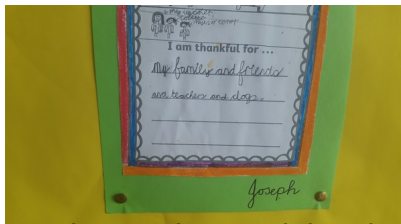 I am thankful for ...
My family and friends
and teachers and dogs.
Joseph